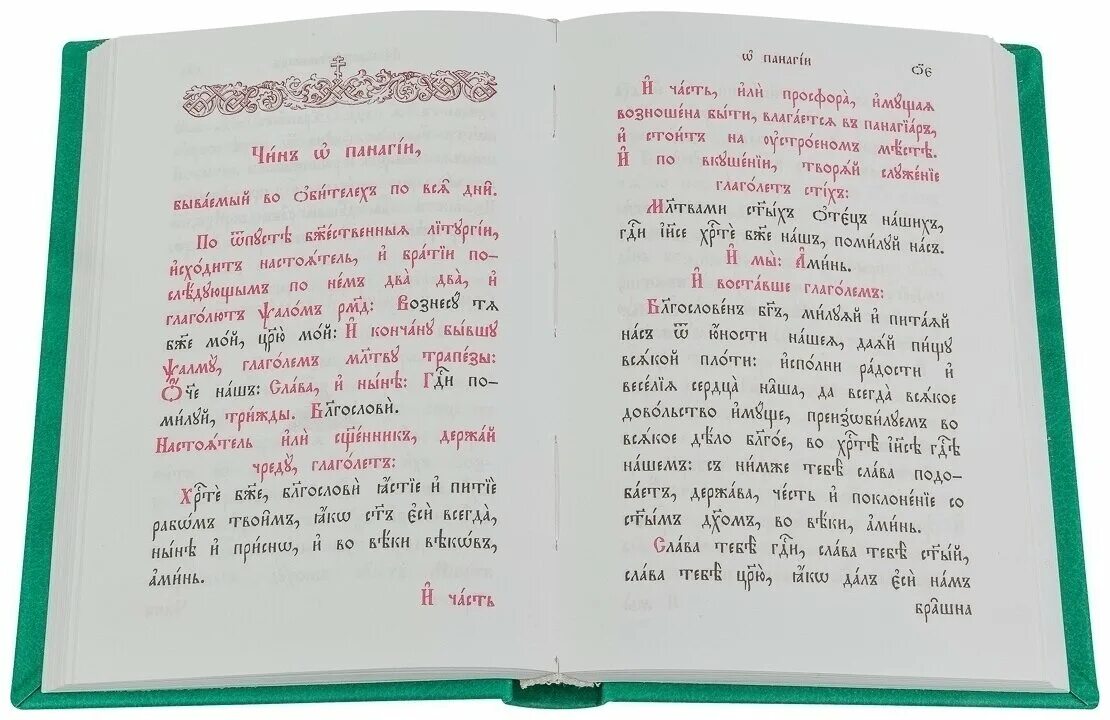 Чи́нъ ѡ҆ панагі́и,
быва́емый во ѻ҆би́телехъ по всѧ̑ дни̑.
По ѿпꙋ́стѣ бж҃е́ственныѧ лїтꙋргі́и,
и҆схо́дитъ настоѧ́тель, и҆ бра́тїи по-
слѣ́дꙋющымъ по не́мъ два̀ два̀, и҆
глаго́лютъ ѱало́мъ рм҃д: Вознесꙋ́ тѧ
бж҃е мо́й, цр҃ю̀ мо́й: И҆ конча́нꙋ бы́вшꙋ
ѱалмꙋ̀, глаго́лемъ мл҃твꙋ трапе́зы:
Ѻ҆́ч҃е на́шъ: Сла́ва, и҆ ны́нѣ: Гдⷭ҇и по-
ми́лꙋй, три́жды. Бл҃гословѝ.
Настоѧ́тель и҆лѝ сщ҃е́нникъ, держа́й
чредꙋ̀, глаго́летъ:
Хрⷭ҇тѐ бж҃е, бл҃гословѝ ꙗ҆́стїе и҆ питїѐ
рабѡ́мъ твои̑мъ, ꙗ҆́кѡ ст҃ъ є҆сѝ всегда̀,
ны́нѣ и҆ при́снѡ, и҆ во вѣ́ки вѣкѡ́въ,
а҆ми́нь.
И҆ ча́сть
ѡ҆ панагі́и
ѻ҃є
И҆ ча́сть, и҆лѝ просфора̀, и҆мꙋ́щаѧ
возноше́на бы́ти, влага́етсѧ въ панагїа́ръ,
и҆ стои́тъ на ᲂу҆стро́еномъ мѣ́стѣ.
И҆ по вкꙋше́нїи, творѧ́й слꙋже́нїе
глаго́летъ сті́хъ:
Мл҃твами ст҃ы́хъ ѻ҆те́цъ на́шихъ,
гдⷭ҇и і҆и҃се хрⷭ҇тѐ бж҃е на́шъ, поми́лꙋй на́съ.
И҆ мы̀: А҆ми́нь.
И҆ воста́вше глаго́лемъ:
Бл҃гослове́нъ бг҃ъ, ми́лꙋѧй и҆ пита́ѧй
на́съ ѿ ю҆́ности на́шеѧ, даѧ́й пи́щꙋ
всѧ́кой пло́ти: и҆спо́лни ра́дости и҆
весе́лїѧ сердца̀ на̑ша, да всегда̀ всѧ́кое
дово́льство и҆мꙋ́ще, преизѡби́лꙋемъ во
всѧ́кое дѣ́ло бл҃го́е, во хрⷭ҇тѣ̀ і҆и҃сѣ гдⷭ҇ѣ
на́шемъ: съ ни́мже тебѣ̀ сла́ва подо-
ба́етъ, держа́ва, че́сть и҆ поклоне́нїе со
ст҃ы́мъ дх҃омъ, во вѣ́ки, а҆ми́нь.
Сла́ва тебѣ̀ гдⷭ҇и, сла́ва тебѣ̀ ст҃ы́й,
сла́ва тебѣ̀ цр҃ю̀, ꙗ҆́кѡ да́лъ є҆сѝ на́мъ
бра̑шна